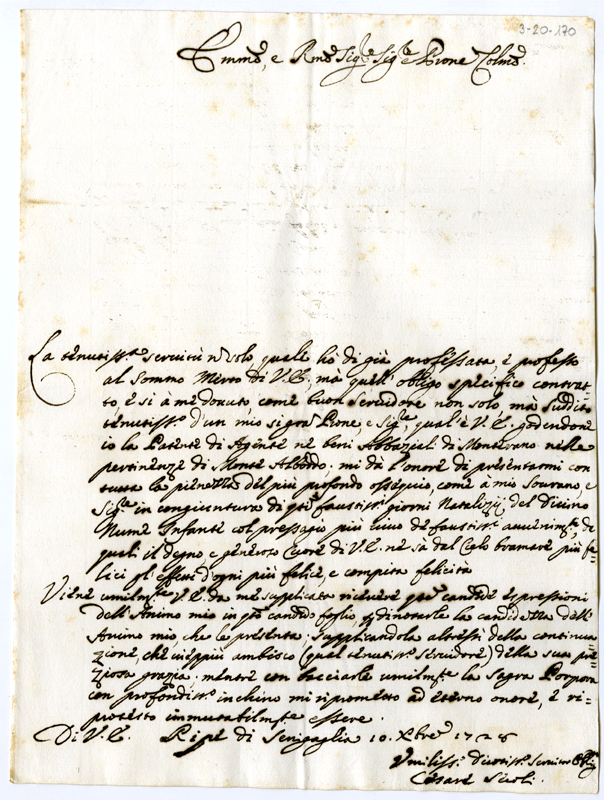 3-20-170
Emmo, e Rmo Sigre Sigre e Prone Colmo
La tenutissa servitù nò solo quale hò di già professata, e professo
al Sommo Merto di V.E., mà quell' obligo specifico contrat-
to è si à me dovuto come buon servidore non solo, mà suddito
tenutisso d'un mio signor Prone e Sigre, qual' è V.E. godendone
io la Patente di Agente ne beni Abbaziali di Montevano nelle
pertinenze di Monte Alboddo; mi dà l'onore di presentarmi con
tutta la pienezza del più profondo ossequio, come à mio Sovrano, e
Sigre in congiuntura di qsti faustissi giorni Natalizij del Divino
Nume Infante col pressagio più vivo de faustissi avvenimti di
quali il degno e generoso Cuore di V.E. ne sà dal Cielo bramare più fe-
lici gl' effetti d'ogni più felice, e compita felicità
Viene umilmte V.E. da me supplicata ricevere qste candide espressioni
dell' Animo mio in qsto candido foglio, p dinotarle la candidezza dell'
Animo mio, che le presenta, supplicandola altresì della continua-
zione, che vieppiù ambisco (qual tenutisso servidore) della sua pre-
ziosa grazia, mentre con bacciarle umilmte la Sagra Porpora
con profondisso inchino mi riprometto ad eterno onore, e ri-
protesto immutabilmte essere.
Di V.E. Ripe di Senigaglia 10. Xbre 1728
Umilisso Divotisso Servitore Obligmo
Cesare